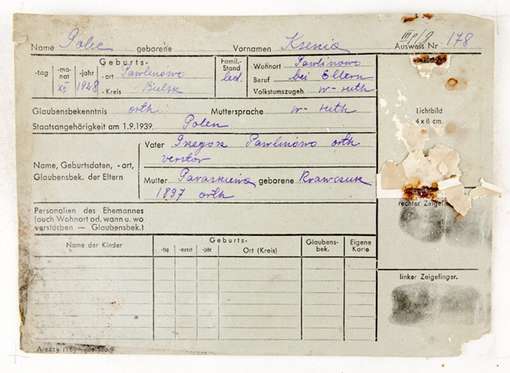 Name Polec geborene Vornamen Ksenia Ausweis Nr 178
Geburts-
-tag -mo-nat -jahr -ort Pawlinowo
XI 1928 -Kreis Bielsk
Famil.-Stand led.
Wohnort Pawlinowo
Beruf bei Eltern
Volkstumszugeh. w-ruth
Glaubensbekenntnis orth Muttersprache w-ruth
Staatsangehörigkeit am 1.9.1939 Polen
Lichtbild
4 x 6 cm
Name, Geburtsdaten, -ort,
Glaubensbek. der Eltern
Vater Pawlinowo orth
verstor
Mutter Paraskiewa geborene Krawcsuk
1897 orth
rechter Zeigefinger
Personalien des Ehemannes
(auch Wohnort od. wann u. wo
verstorben — Glaubensbek.)
Name der Kinder Geburts- Glaubens-bek. Eigene Karte
-tag -monat -jahr Ort (Kreis)
linker Zeigefinger.